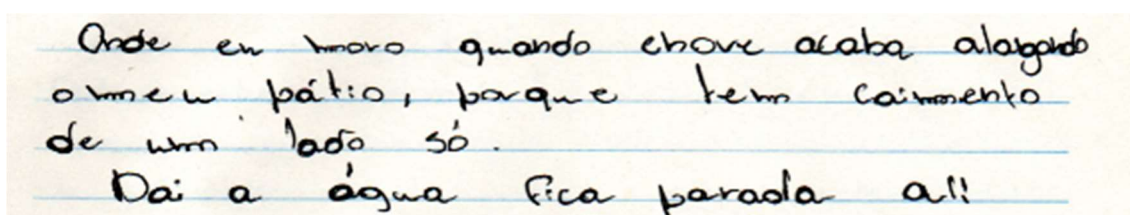 Onde eu moro quando chove acaba alagando
o meu pátio, porque tem caimento
de um lado só.
Dai a água fica parada ali